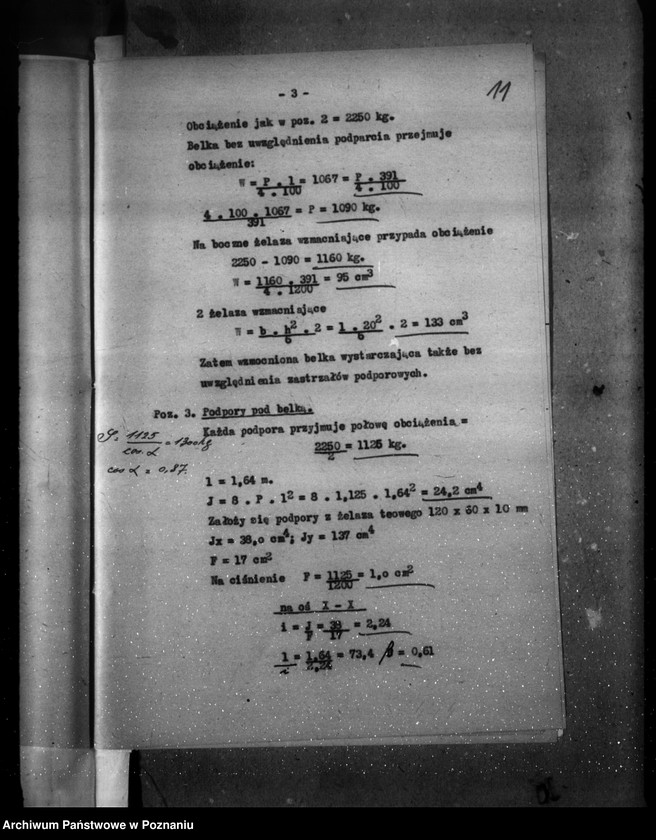 - 3 -
11
Obciążenie jak w poz. 2 = 2250 kg.
Belka bez uwzględnienia podparcia przejmuje
obciążenie:
W = P . l / 4 . 100 = 1067 = P . 391 / 4 . 100
4 . 100 . 1067 / 391 = P = 1090 kg.
Na boczne żelaza wzmacniające przypada obciążenie
2250 - 1090 = 1160 kg.
W = 1160 . 391 / 4 . 1200 = 95 cm³
2 żelaza wzmacniające
W = b . h² / 6 . 2 = 1 . 20² / 6 . 2 = 133 cm³
Zatem wzmocniona belka wystarczająca także bez
uwzględnienia zastrzałów podporowych.
Poz. 3. Podpory pod belką.
Każda podpora przyjmuje połowę obciążenia =
2250 / 2 = 1125 kg.
1125 / cos. α = 1300 kg
cos α = 0,87.
l = 1,64 m.
J = 8 . P . l² = 8 . 1,125 . 1,64² = 24,2 cm⁴
Założy się podpory z żelaza teowego 120 x 60 x 10 mm
Jx = 38,0 cm⁴; Jy = 137 cm⁴
F = 17 cm²
Na ciśnienie F = 1125 / 1200 = 1,0 cm²
na oś X - X
i = J / F = 38 / 17 = 2,24
l / i = 1,64 / 2,24 = 73,4 β = 0,61
Archiwum Państwowe w Poznaniu